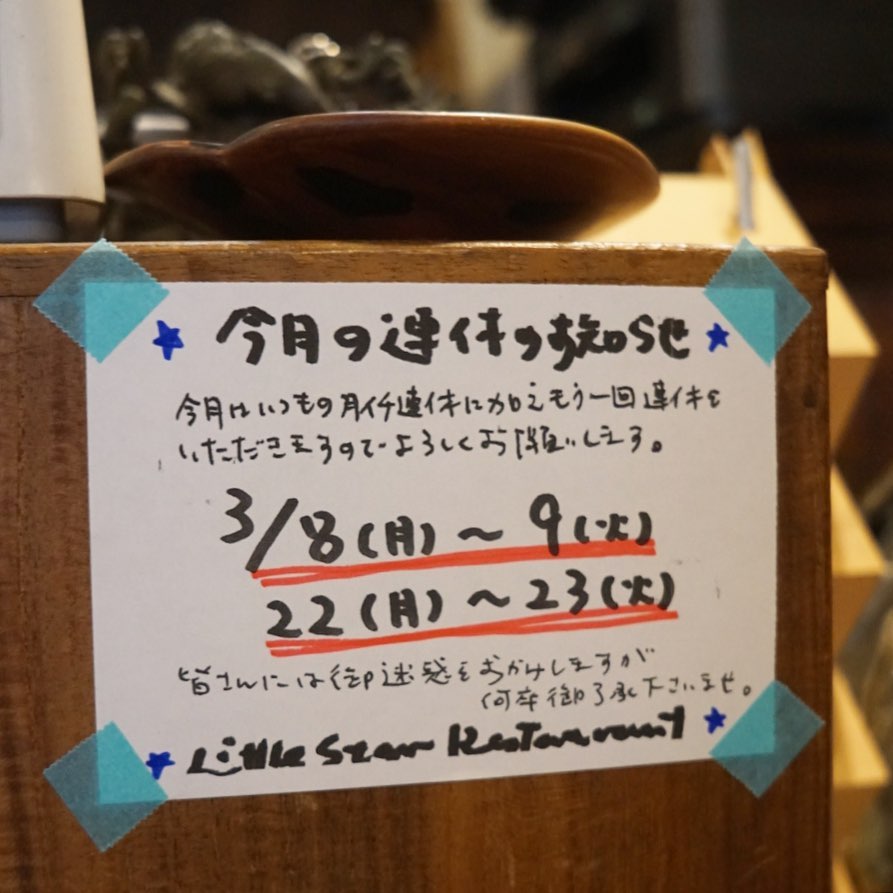 ★今月の連休のお知らせ★
今月はいつもの月イチ連休に加えもう一回連休を
いただきますのでよろしくお願いします。
3/8(月)〜9(火)
22(月)〜23(火)
皆さんには御迷惑をおかけしますが
何卒御了承下さいませ。
★Little Star Restaurant★